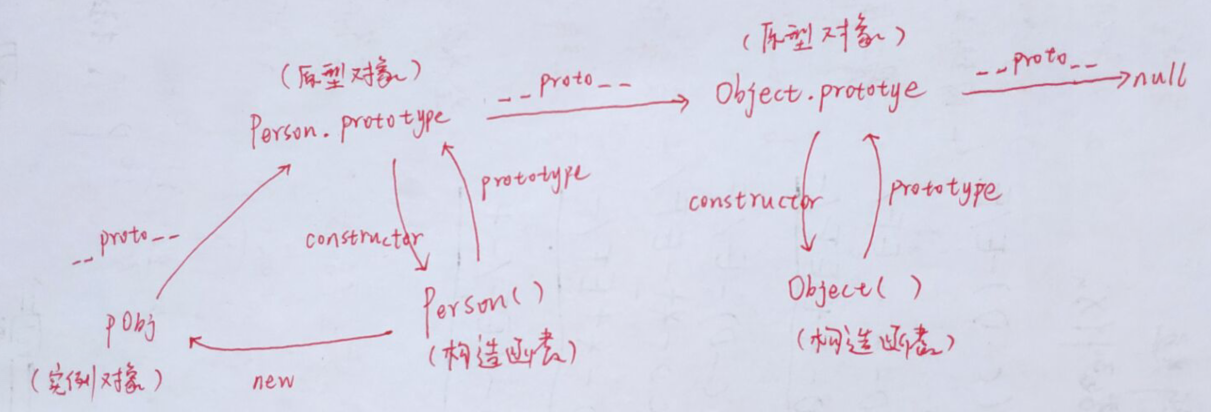 (原型对象)
(原型对象)
__proto__
__proto__
Person.prototype
Object.prototye
null
prototype
constructor
prototype
__proto__
constructor
Person()
Object( )
pObj
(构造函数)
(构造函数)
(实例对象)
new